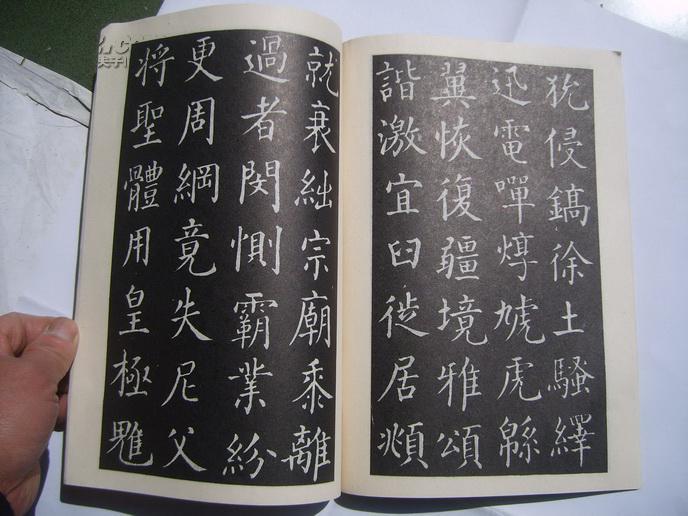 犹侵鎬徐土騷繹
迅電嘽焞虓虎緜
翼恢復疆境雅頌
諧激宜臼徙居兆
就衰絀宗廟黍離
過者閔惻霸業紛
更周綱竟失尼父
将聖體用皇極雕